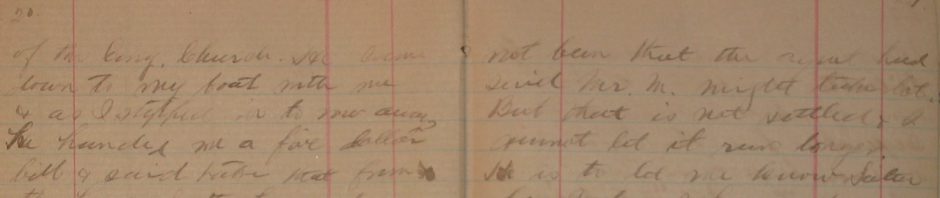 20.
of the Cong. Church. He came
down to my boat with me
& as I stepped in to row away
he handed me a five dollar
bill & said take that from
not been that the agent had
said Mr. M. might take it.
But that is not settled & I
cannot let it run longer
He is to let me know